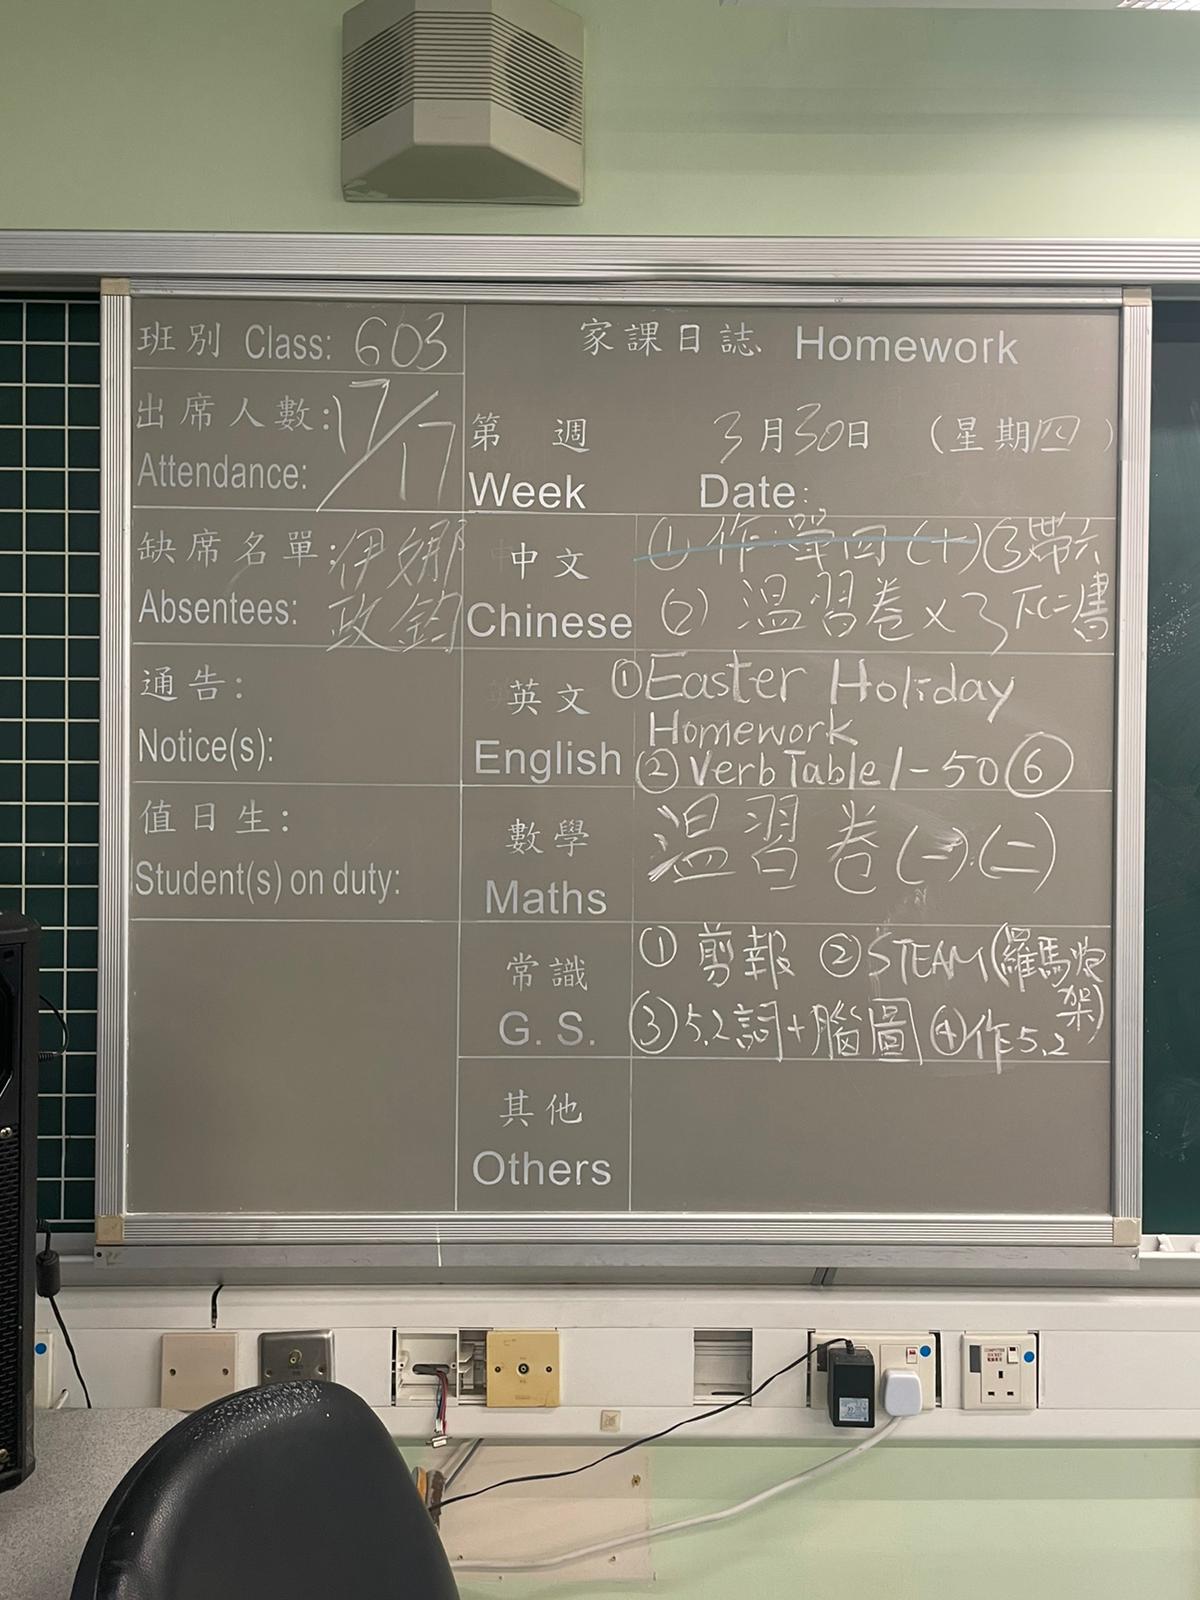 班別 Class: 603
出席人數: 17/17
Attendance:
缺席名單: 伊娜
Absentees: 政鈞
通告:
Notice(s):
值日生:
Student(s) on duty:
家課日誌 Homework
第 週 3月30日 (星期四)
Week Date:
中文 ① 作:單四(十) ③帶六
Chinese ② 溫習卷×3 下仁書
英文 ①Easter Holiday
Homework
English ②Verb Table 1-50 ⑥
數學 溫習卷(一)、(二)
Maths
常識 ① 剪報 ② STEAM(羅馬炮
架)
G. S. ③5.2詞+腦圖 ④作5.2
其他
Others
COMPUTER